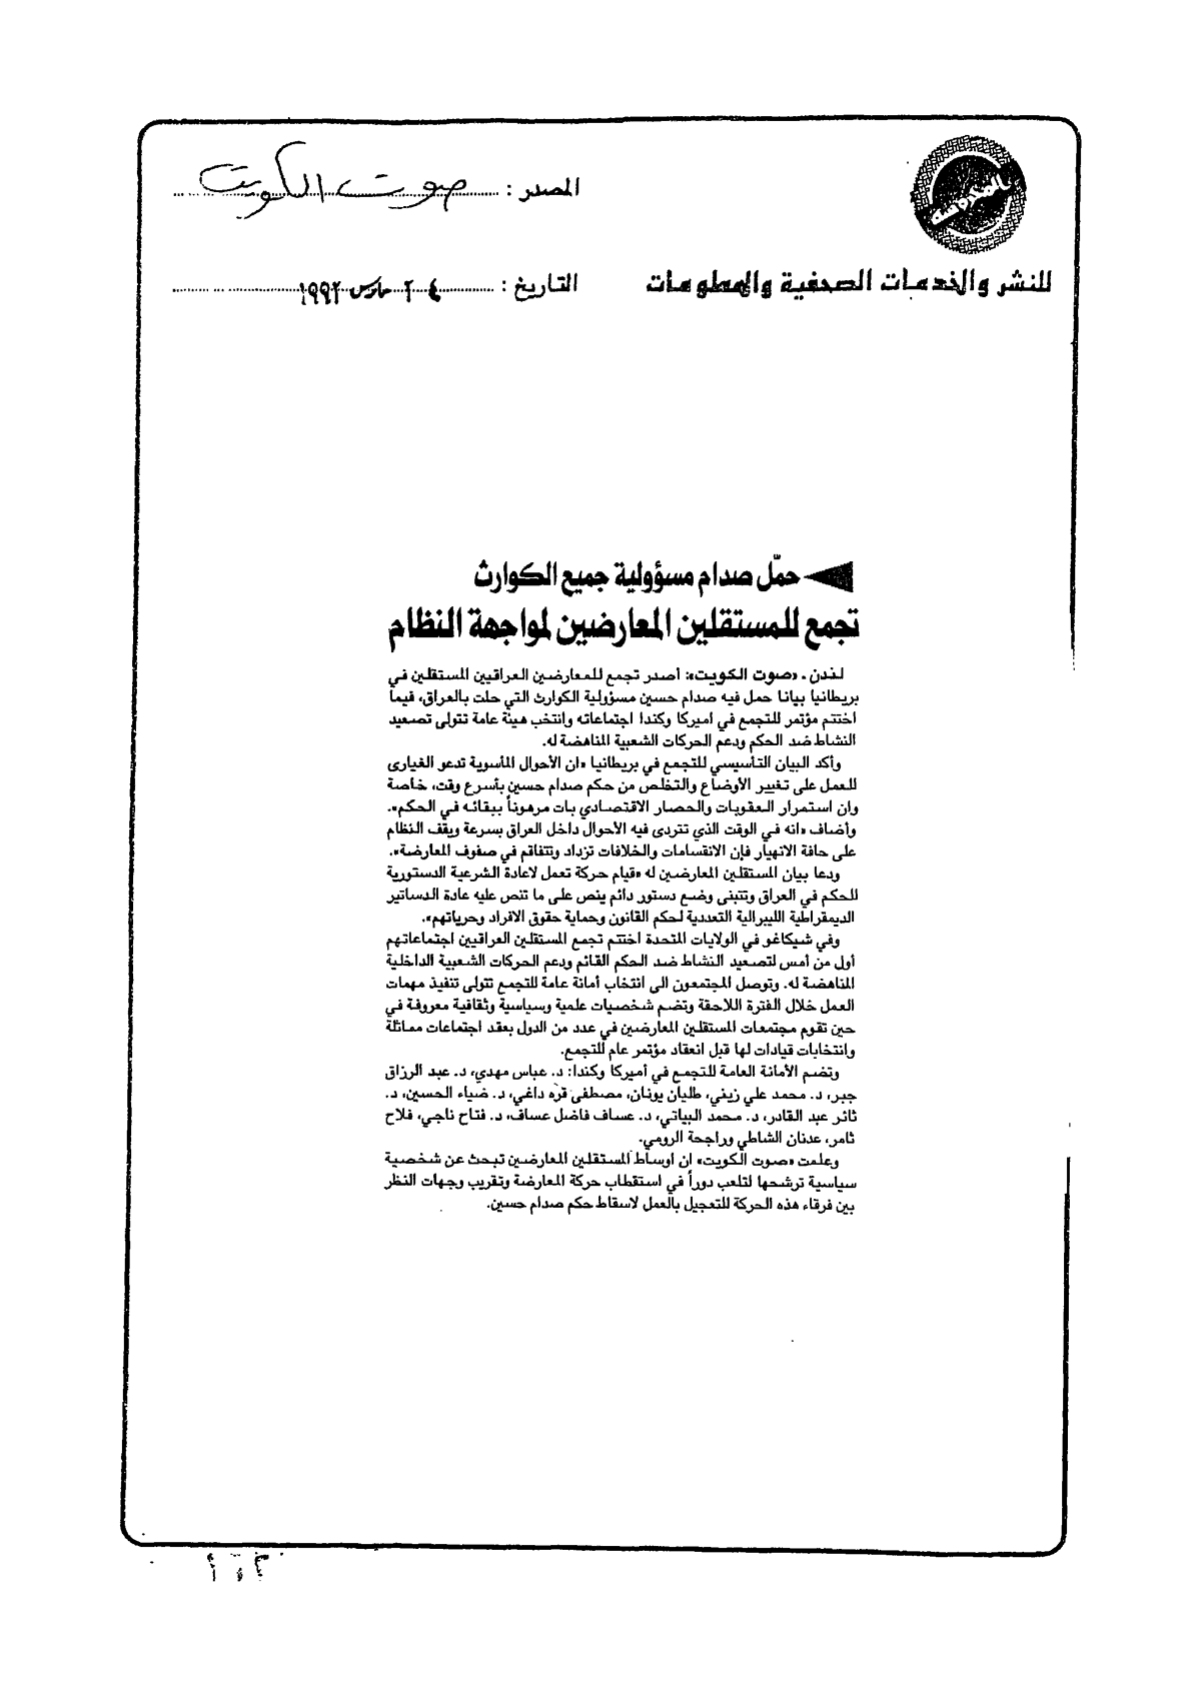 المصدر : صوت الكويت
للنشر والخدمات الصحفية والمعلومات
التاريخ : ٢٤ مارس ١٩٩٢
حمّل صدام مسؤولية جميع الكوارث
تجمع للمستقلين المعارضين لمواجهة النظام
لندن ـ «صوت الكويت»: أصدر تجمع للمعارضين العراقيين المستقلين في
بريطانيا بيانا حمل فيه صدام حسين مسؤولية الكوارث التي حلت بالعراق، فيما
اختتم مؤتمر للتجمع في اميركا وكندا اجتماعاته وانتخب هيئة عامة تتولى تصعيد
النشاط ضد الحكم ودعم الحركات الشعبية المناهضة له.
وأكد البيان التأسيسي للتجمع في بريطانيا «ان الأحوال المأسوية تدعو الغيارى
للعمل على تغيير الأوضاع والتخلص من حكم صدام حسين بأسرع وقت، خاصة
وان استمرار العقوبات والحصار الاقتصادي بات مرهوناً ببقائه في الحكم».
وأضاف «انه في الوقت الذي تتردى فيه الأحوال داخل العراق بسرعة ويقف النظام
على حافة الانهيار فإن الانقسامات والخلافات تزداد وتتفاقم في صفوف المعارضة».
ودعا بيان المستقلين المعارضين له «قيام حركة تعمل لاعادة الشرعية الدستورية
للحكم في العراق وتتبنى وضع دستور دائم ينص على ما تنص عليه عادة الدساتير
الديمقراطية الليبرالية التعددية لحكم القانون وحماية حقوق الافراد وحرياتهم».
وفي شيكاغو في الولايات المتحدة اختتم تجمع المستقلين العراقيين اجتماعاتهم
أول من أمس لتصعيد النشاط ضد الحكم القائم ودعم الحركات الشعبية الداخلية
المناهضة له. وتوصل المجتمعون الى انتخاب أمانة عامة للتجمع تتولى تنفيذ مهمات
العمل خلال الفترة اللاحقة وتضم شخصيات علمية وسياسية وثقافية معروفة في
حين تقوم مجتمعات المستقلين المعارضين في عدد من الدول بعقد اجتماعات مماثلة
وانتخابات قيادات لها قبل انعقاد مؤتمر عام للتجمع.
وتضم الأمانة العامة للتجمع في أميركا وكندا: د. عباس مهدي، د. عبد الرزاق
جبر، د. محمد علي زيني، طليان يونان، مصطفى قره داغي، د. ضياء الحسين، د.
ثائر عبد القادر، د. محمد البياتي، د. عساف فاضل عساف، د. فتاح ناجي، فلاح
ثامر، عدنان الشاطي وراجحة الرومي.
وعلمت «صوت الكويت» ان اوساط المستقلين المعارضين تبحث عن شخصية
سياسية ترشحها لتلعب دوراً في استقطاب حركة المعارضة وتقريب وجهات النظر
بين فرقاء هذه الحركة للتعجيل بالعمل لاسقاط حكم صدام حسين.